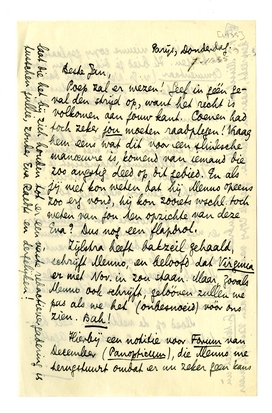 Parijs, Donderdag.
Beste Jan,
Poep zal er wezen! Geef in géén ge-
val den strijd op, want het recht is
volkomen aan jouw kant. Coenen had
toch zeker jou moeten raadplegen! Vraag
hem eens wat dit voor een flinksche
manoeuvre is komend van iemand die
zoo angstig deed op dit gebied. En als
jij niet kon weten dat hij Menno opeens
zoo erg vond, hij kon zooiets wèl toch
weten van jou ten opzichte van deze
Eva? Dus nog een flapdrol.
Zijlstra heeft bakzeil gehaald,
schrijft Menno, en beloofd dat Virginia
er met Nov. in zou staan. Maar, zooals
Menno ook schrijft, gelooven zullen we
pas als we het (ondesnoeid) vóór ons
zien. Bah!
Hierbij een notitie voor Forum van
December (Panopticum), die Menno me
terugstuurt omdat er nu zeker geen kans
tusschen jullie, zonder Eva Raedt en dergelijken!